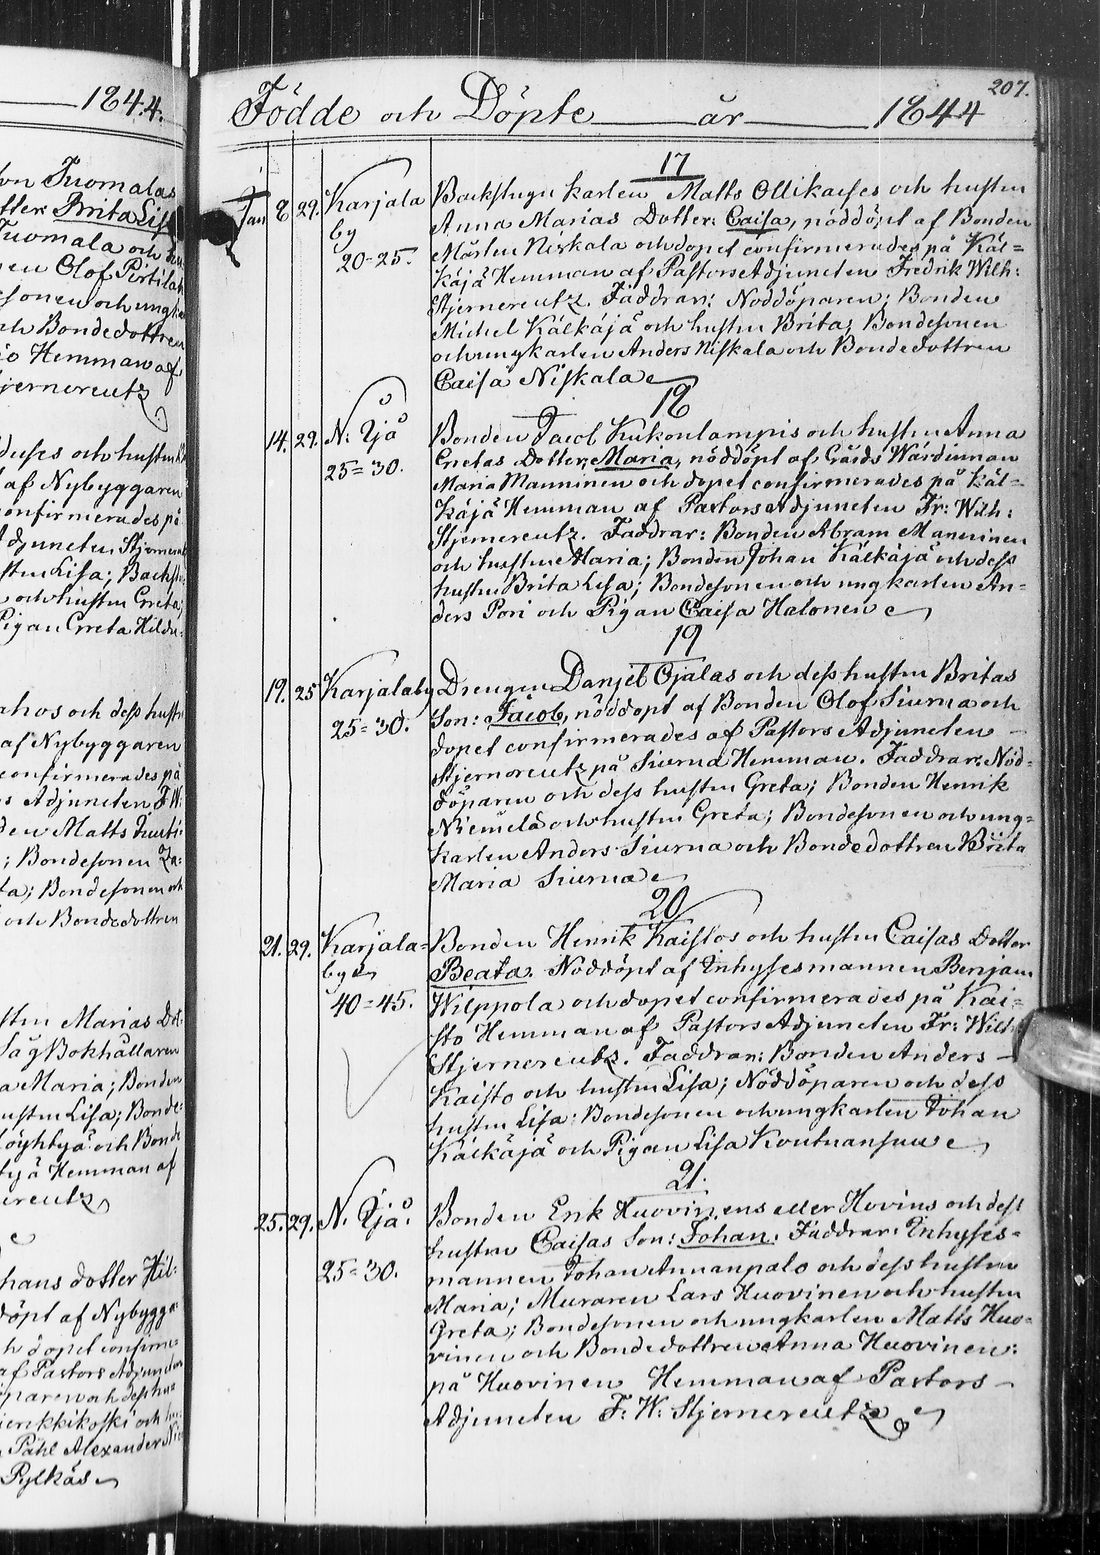 1844.
on Tuomalas
tter: Brita Lisa
Tuomala och hu
en Olof Pirtilä
sonen och ung
ch Bondedottren
jo Hemman af
jernereutz
duses och hustru
af Nybyggaren
onfirmerades på
Adjuncten Stjerner
stru Lisa; Backstu
och hustru Greta;
Pigan Greta Hildu
ahos och dess hustr
af Nybyggaren
confirmerades på
s Adjuncten F. W.
den Matts
; Bondesonen Za:
ta; Bondesonen och
och Bondedottren
stru Marias Dot-
Såg Bokhållaren
a Maria; Bonden
ustru Lisa; Bonde-
öyhtyä och Bonde
tyä Hemman af
ereutz
hans dotter Hil-
döpt af Nybygga-
h dopet confirme-
af Pastors Adjuncten
paren och dess hu-
ierikkikoski och hu-
Påhl Alexander Nie
Pylkäs
207.
Födde och Döpte år 1844
17
Jan 8 29. Karjala Backstugu karlen Matts Ollikaises och hustru
by Anna Marias Dotter: Caisa, nöddöpt af Bonden
20-25. Mårten Niskala och dopet confirmerades på Käl=
käjä Hemman af Pastors Adjuncten Fredrik Wilh:
Stjernereutz. Faddrar: Nöddöparen; Bonden
Michel Kälkäjä och hustru Brita; Bondesonen
och ungkarlen Anders Niskala och Bondedottren
Caisa Niskala
18
14. 29. N: Ijå Bonden Jacob Kukonlampis och hustru Anna
25=30. Gretas Dotter; Maria, nöddöpt af Gårds Wärdinnan
Maria Manninen och dopet confirmerades på Käl=
käjä Hemman af Pastors Adjuncten Fr: Wilh:
Stjernereutz. Faddrar: Bonden Abram Manninen
och hustru Maria; Bonden Johan Kälkäjä och dess
hustru Brita Lisa; Bondesonen och ungkarlen An=
ders Pori och Pigan Caisa Halonen
19
19. 25 Karjalaby Drengen Danjel Ojalas och dess hustru Britas
25=30. Son: Jacob, nöddöpt af Bonden Olof Siurna och
dopet confirmerades af Pastors Adjuncten
Stjernereutz på Siurna Hemman. Faddrar: Nöd=
döparen och dess hustru Greta; Bonden Henrik
Niemelä och hustru Greta; Bondesonen och ung=
karlen Anders Siurna och Bondedottren Brita
Maria Siurna
20
21. 29. Karjala= Bonden Henrik Kaistos och hustru Caisas Dotter
by Beata. Nöddöpt af Inhyses mannen Benjam
40=45. Wilppola och dopet confirmerades på Kai=
sto Hemman af Pastors Adjuncten Fr: Wilh
Stjernereutz. Faddrar: Bonden Anders
Kaisto och hustru Lisa; Nöddöparen och dess
hustru Lisa: Bondesonen och ungkarlen Johan
Kälkäjä och Pigan Lisa Koutuansuu
21.
25. 29. N. Ijå. Bonden Erik Huovinens eller Hovius och dess
hustru Caisas Son: Johan. Faddrar: Inhyses=
25=30. mannen Johan Annanpalo och dess hustru
Maria; Muraren Lars Huovinen och hustru
Greta; Bondesonen och ungkarlen Matts Huo=
vinen och Bondedottren Anna Huovinen:
på Huovinen Hemman af Pastors
Adjuncten F: W: Stjernereutz